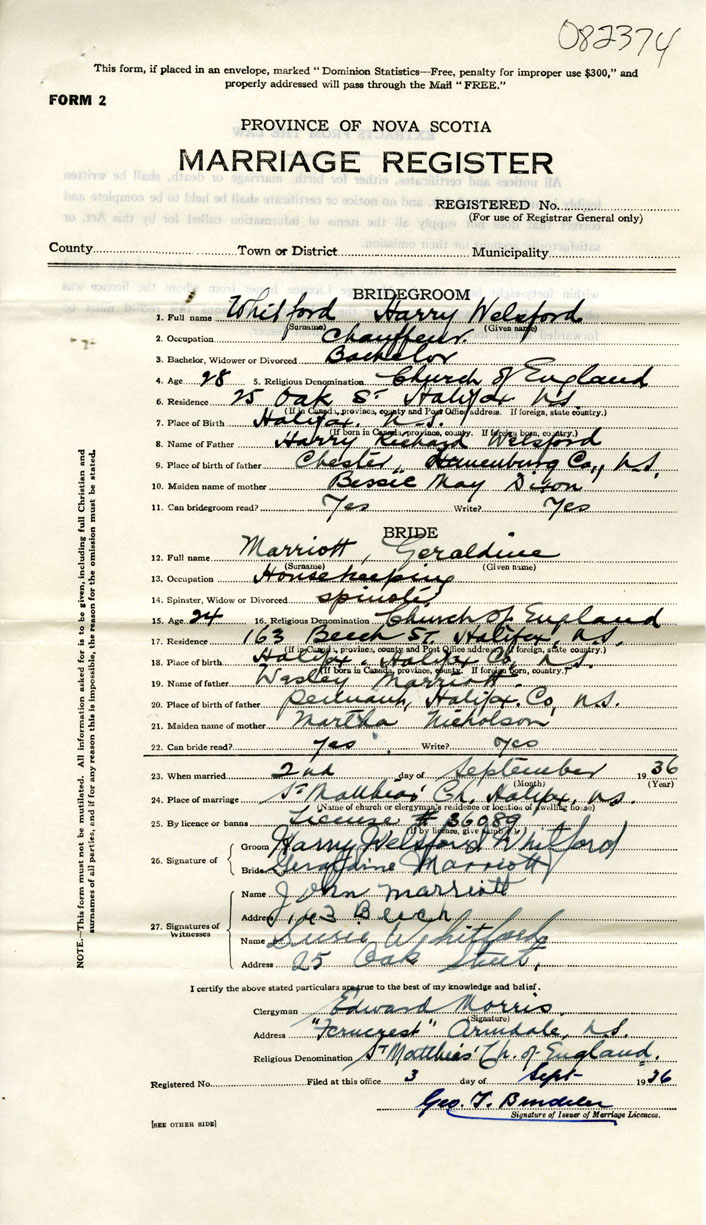 082374
This form, if placed in an envelope, marked "Dominion Statistics—Free, penalty for improper use $300," and
properly addressed will pass through the Mail "FREE."
FORM 2
PROVINCE OF NOVA SCOTIA
MARRIAGE REGISTER
REGISTERED No.
(For use of Registrar General only)
County Town or District Municipality
BRIDEGROOM
1. Full name Whitford Harry Welsford
(Surname) (Given name)
2. Occupation Chauffeur.
3. Bachelor, Widower or Divorced Bachelor
4. Age 28 5. Religious Denomination Church of England
6. Residence 25 Oak St Halifax N.S.
(If in Canada, province, county and Post Office address. If foreign, state country.)
7. Place of Birth Halifax. N.S.
(If born in Canada, province, county. If foreign born, country.)
8. Name of Father Harry Richard Welsford
9. Place of birth of father Chester, Lunenburg Co., N.S.
10. Maiden name of mother Bessie May Dixon
11. Can bridegroom read? Yes Write? Yes
BRIDE
12. Full name Marriott, Geraldine
(Surname) (Given name)
13. Occupation Housekeeping
14. Spinster, Widow or Divorced spinster
15. Age 24 16. Religious Denomination Church of England
17. Residence 163 Beech St. Halifax, N.S.
(If in Canada, province, county and Post Office address. If foreign, state country.)
18. Place of birth Halifax, Halifax Co, N.S.
(If born in Canada, province, county. If foreign born, country.)
19. Name of father Wesley Marriott.
20. Place of birth of father Halifax Co, N.S.
21. Maiden name of mother Martha Nicholson
22. Can bride read? Yes Write? Yes
23. When married 2nd day of September 1936
(Month) (Year)
24. Place of marriage St Matthias' Ch, Halifax, N.S.
(Name of church or clergyman's residence or location of dwelling house)
25. By licence or banns License # 36089
(If by licence, give number)
26. Signature of Groom Harry Welsford Whitford
Bride Geraldine Marriott
27. Signatures of Witnesses
Name John Marriott
Address 163 Beech
Name Whitford
Address 25 Oak Street.
I certify the above stated particulars are true to the best of my knowledge and belief.
Clergyman Edward Morris,
(Signature)
Address "Ferncrest" Armdale, N.S.
Religious Denomination St Matthias' Ch. of England.
Registered No. Filed at this office 3 day of Sept 1936
Geo. T.
Signature of Issuer of Marriage Licences.
[SEE OTHER SIDE]
NOTE.—This form must not be mutilated. All information asked for is to be given, including full Christian and
surnames of all parties, and if for any reason this is impossible, the reason for the omission must be stated.